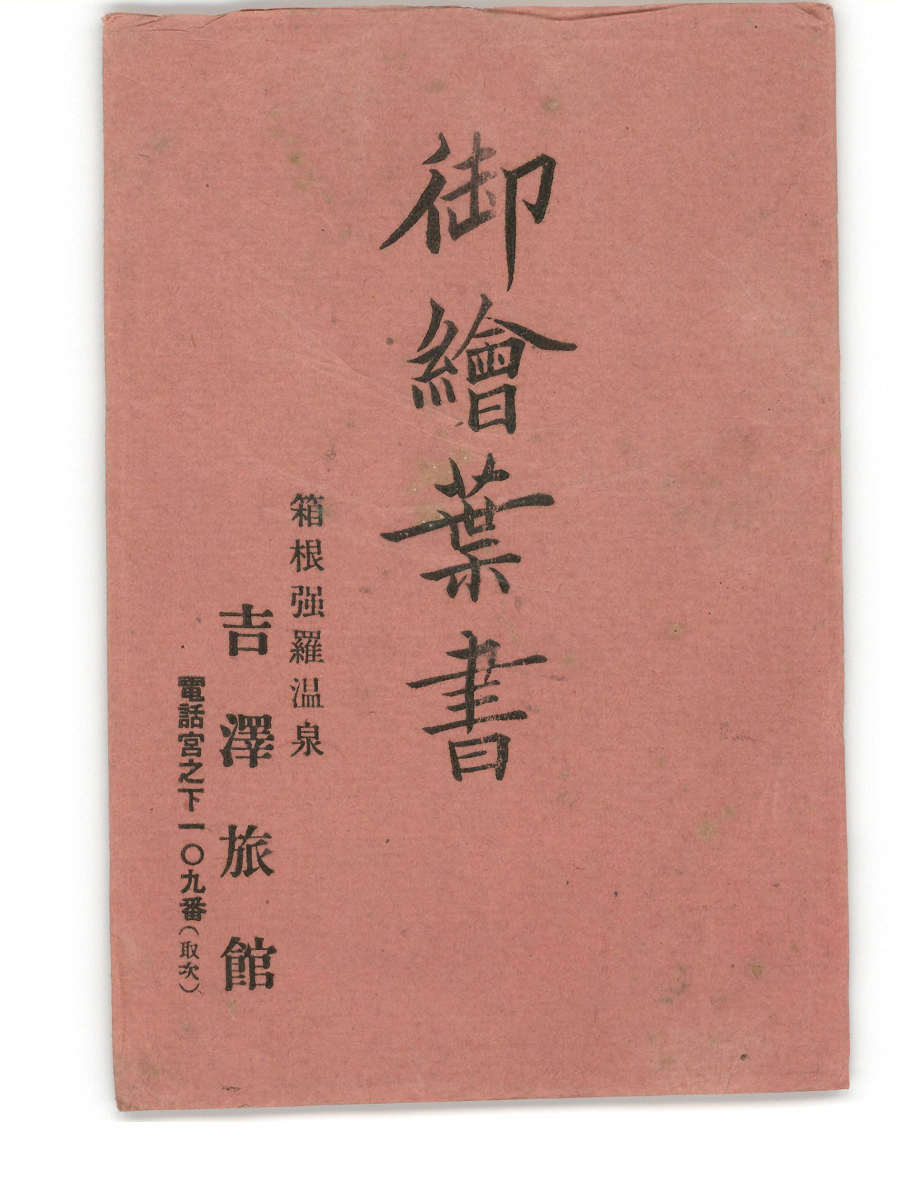 御繪葉書
箱根强羅温泉
吉澤旅館
電話宮之下一〇九番(取次)